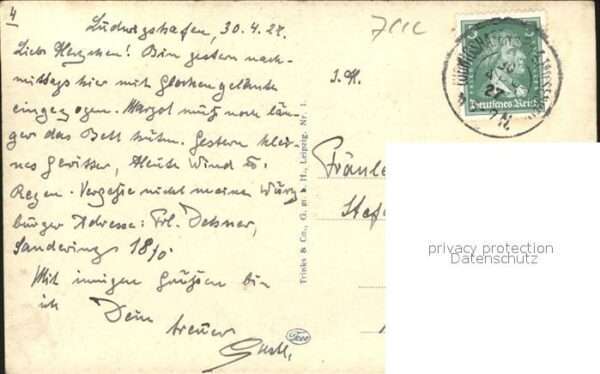 4
Ludwigshafen, 30.4.27.
Liebs Herzchen! Bin gestern nach-
mittags hier mit Glockengeläute
eingezogen. Margol muß noch län-
ger das Bett hüten. Gestern klei-
nes Gewitter, Heute Wind &
Regen. Vergesse nicht meine Würz
burger Adresse: Frl. Detsner,
Sanderring 18/0.
Mit innigen Grüßen bin
ich Dein
treuer
Gustl.
J. H.
Deutsches Reich
27
Trinks & Co., G. m. b. H., Leipzig. Nr. 1.
Fräule
Stef
privacy protection
Datenschutz
Trico